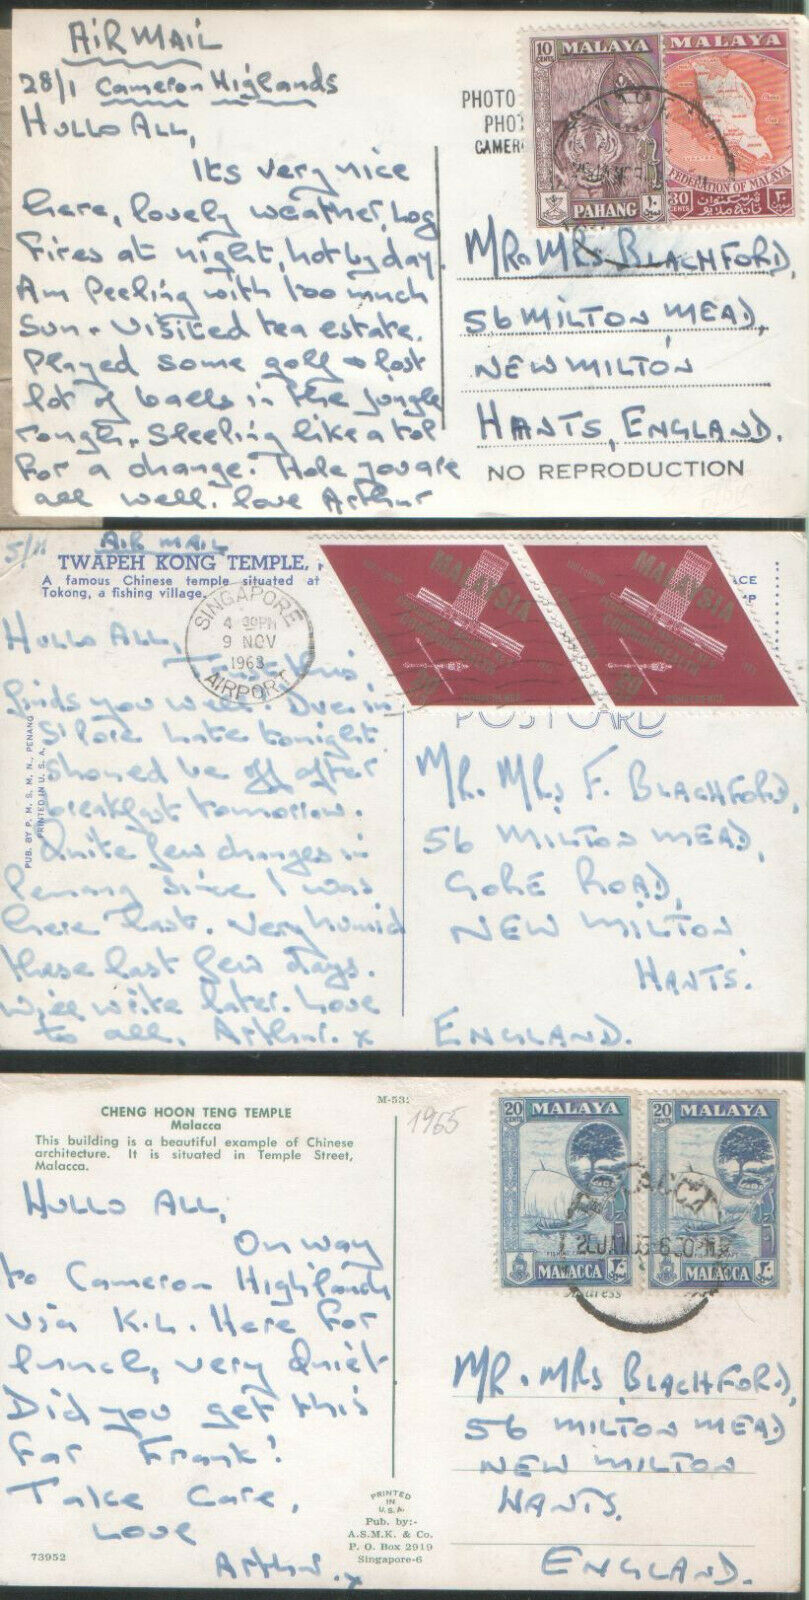 AIR MAIL
28/1 Cameron Highlands
HULLO ALL,
Its very nice
here, lovely weather, log
fires at night, hot by day.
Am Peeling with too much
Sun - visited tea estate.
Played some golf & lost
lot of balls in the jungle
rough. Sleeping like a top
for a change. Hope you are
all well. love Arthur
PHOTO
PHOT
CAMER
10 CENTS MALAYA
PAHANG
MALAYA
FEDERATION OF MALAYA
30 CENTS
MR & MRS BLACHFORD,
56 MILTON MEAD,
NEW MILTON
HANTS, ENGLAND.
NO REPRODUCTION
5/11 AIR MAIL
TWAPEH KONG TEMPLE,
A famous Chinese temple situated at
Tokong, a fishing village.
SINGAPORE
4 30PM
9 NOV
1963
AIRPORT
HULLO ALL,
Trust this
finds you well. Due in
S'pore late tonight
should be off after
breakfast tomorrow.
Quite few changes in
Penang since I was
here last. Very humid
these last few days.
Will write later. Love
to all, Arthur. x
PUB. BY P. M. S. M. N., PENANG
PRINTED IN U. S. A.
MALAYSIA
COMMONWEALTH
CONFERENCE
20
MALAYSIA
COMMONWEALTH
CONFERENCE
20
ACE
MP
POST CARD
MR. MRS F. BLACHFORD,
56 MILTON MEAD,
GORE ROAD,
NEW MILTON
HANTS.
ENGLAND.
CHENG HOON TENG TEMPLE
Malacca
This building is a beautiful example of Chinese
architecture. It is situated in Temple Street,
Malacca.
M-53
1965
HULLO ALL,
On way
to Cameron Highlands
via K.L. Here for
lunch, very quiet
Did you get this
far Frank?
Take Care,
Love
Arthur. x
73952
PRINTED
IN
U.S.A.
Pub. by:-
A.S.M.K. & Co.
P. O. Box 2919
Singapore-6
20 CENTS MALAYA
MALACCA
20 CENTS MALAYA
MALACCA
MR. MRS BLACHFORD,
56 MILTON MEAD
NEW MILTON
HANTS.
ENGLAND.